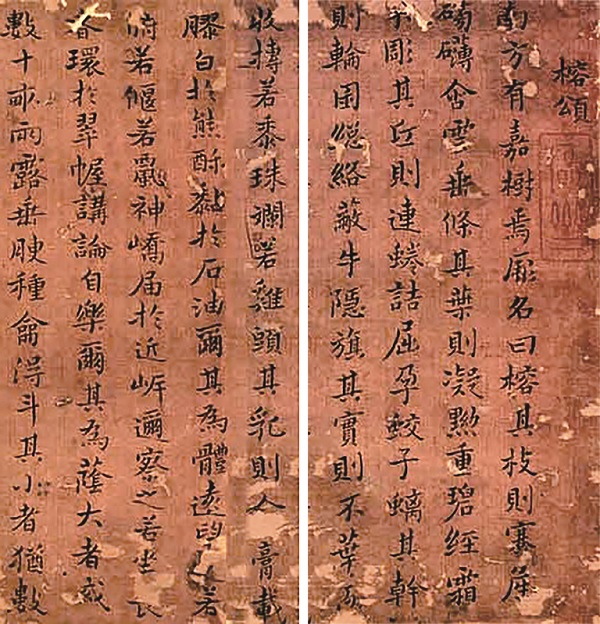 榕頌
南方有嘉樹焉厥名曰榕其枝則蹇
磅礴含雲垂條其葉則凝黝重碧經霜
彫其則連蜷詰屈孕蛟子螭其幹
則輪囷絡蔽牛隱旗其實則不華
收摶若黍珠斕若雞頭其乳則人膏截
膠白於熊酥黏於石油爾其為體遠若
俯若偃若神嶠届於近邇察之若坐
環於翠幄講論自樂爾其為蔭大者或
數十畝雨露垂腴種龠得斗其小者猶數